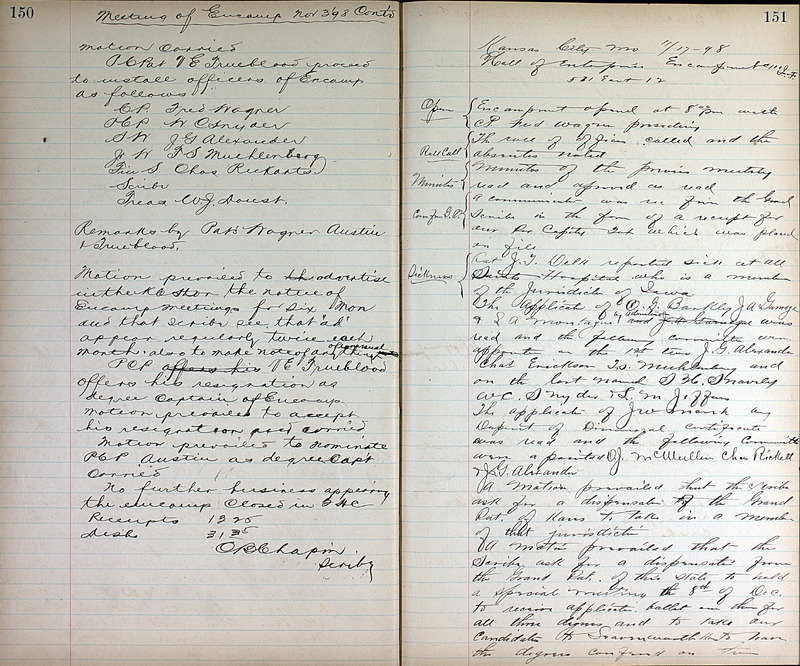 150
Meeting of Encamp Nov 3 98 Cont'd
Motion Carried
P C Pat V E Trueblood proceed
to install officers of Encamp
as follows
C.P. Fred Wagner
H C.P. W C Snyder
S W J G Alexander
Jr W T S Muehlenberg
Fin S. Chas Rickarts
Scribe
Treas W J Doust.
Remarks by Pats Wagner Austin
& Trueblood.
Motion prevailed to the advertise
in the K Star the notice of
Encamp meetings for six Mon
and that Scribe see that 'ad'
appear regularly twice each
month also to make note of anything
of unusual
P C P affers his V E Trueblood
offers his resignation as
degree Captain of Encamp
motion prevailed to accept
his resignation carried
Motion prevailed to nominate
P C P Austin as degree Capt
Carried
No further business appearing
the encamp closed in
Receipts 12 25
Disb 31 35
O B Chapin
Scribe
151
Kansas City Mo 11/17-98
Hall of Enterprise Encampment
521 East 12
Open
Encampment opened at 8 pm with
C.P. Fred Wagner presiding
Roll Call
The roll of officers called and the
absentes noted
Minutes
Minutes of the previous meeting
read and approved as read
Com from G.S.
A communicate was rec from the Grand
Scribe in the form of a receipt for
our Per Capita Tax which was placed
on file
Sickness
Pat J. T. Delk reported sick at all
Saints Hospital who is a member
of the Juridictin of Iowa
The Applicate of O. F. Barkley J A Gamage
& L A Montague by was
read and the following committee were
appointed on the 1st two J. G. Alexander
Chas Erickson T. S. Muhlenberg and
on the last named S H Snavely
W C. Snyder & L. M Jeffers
The applicate of J W Mark by
Deposit of Dismissal Certificate
was read and the following Committee
were apointed O J McMullen Chas Rickett
& J. G. Alexander
A Motion prevailed that the Scribe
ask for a dispensatin of the Grand
Pat. of Kans to take in a member
of that jurisdictin
A Motin prevailed that the
Scribe ask for a dispensatin from
the Grand Pat. of this State to hold
a special meeting the 8th of Dec.
to receive applicatin ballot on them for
all three degrees and to take our
Candidates to Leavenworth Ks to have
the degrees confered on